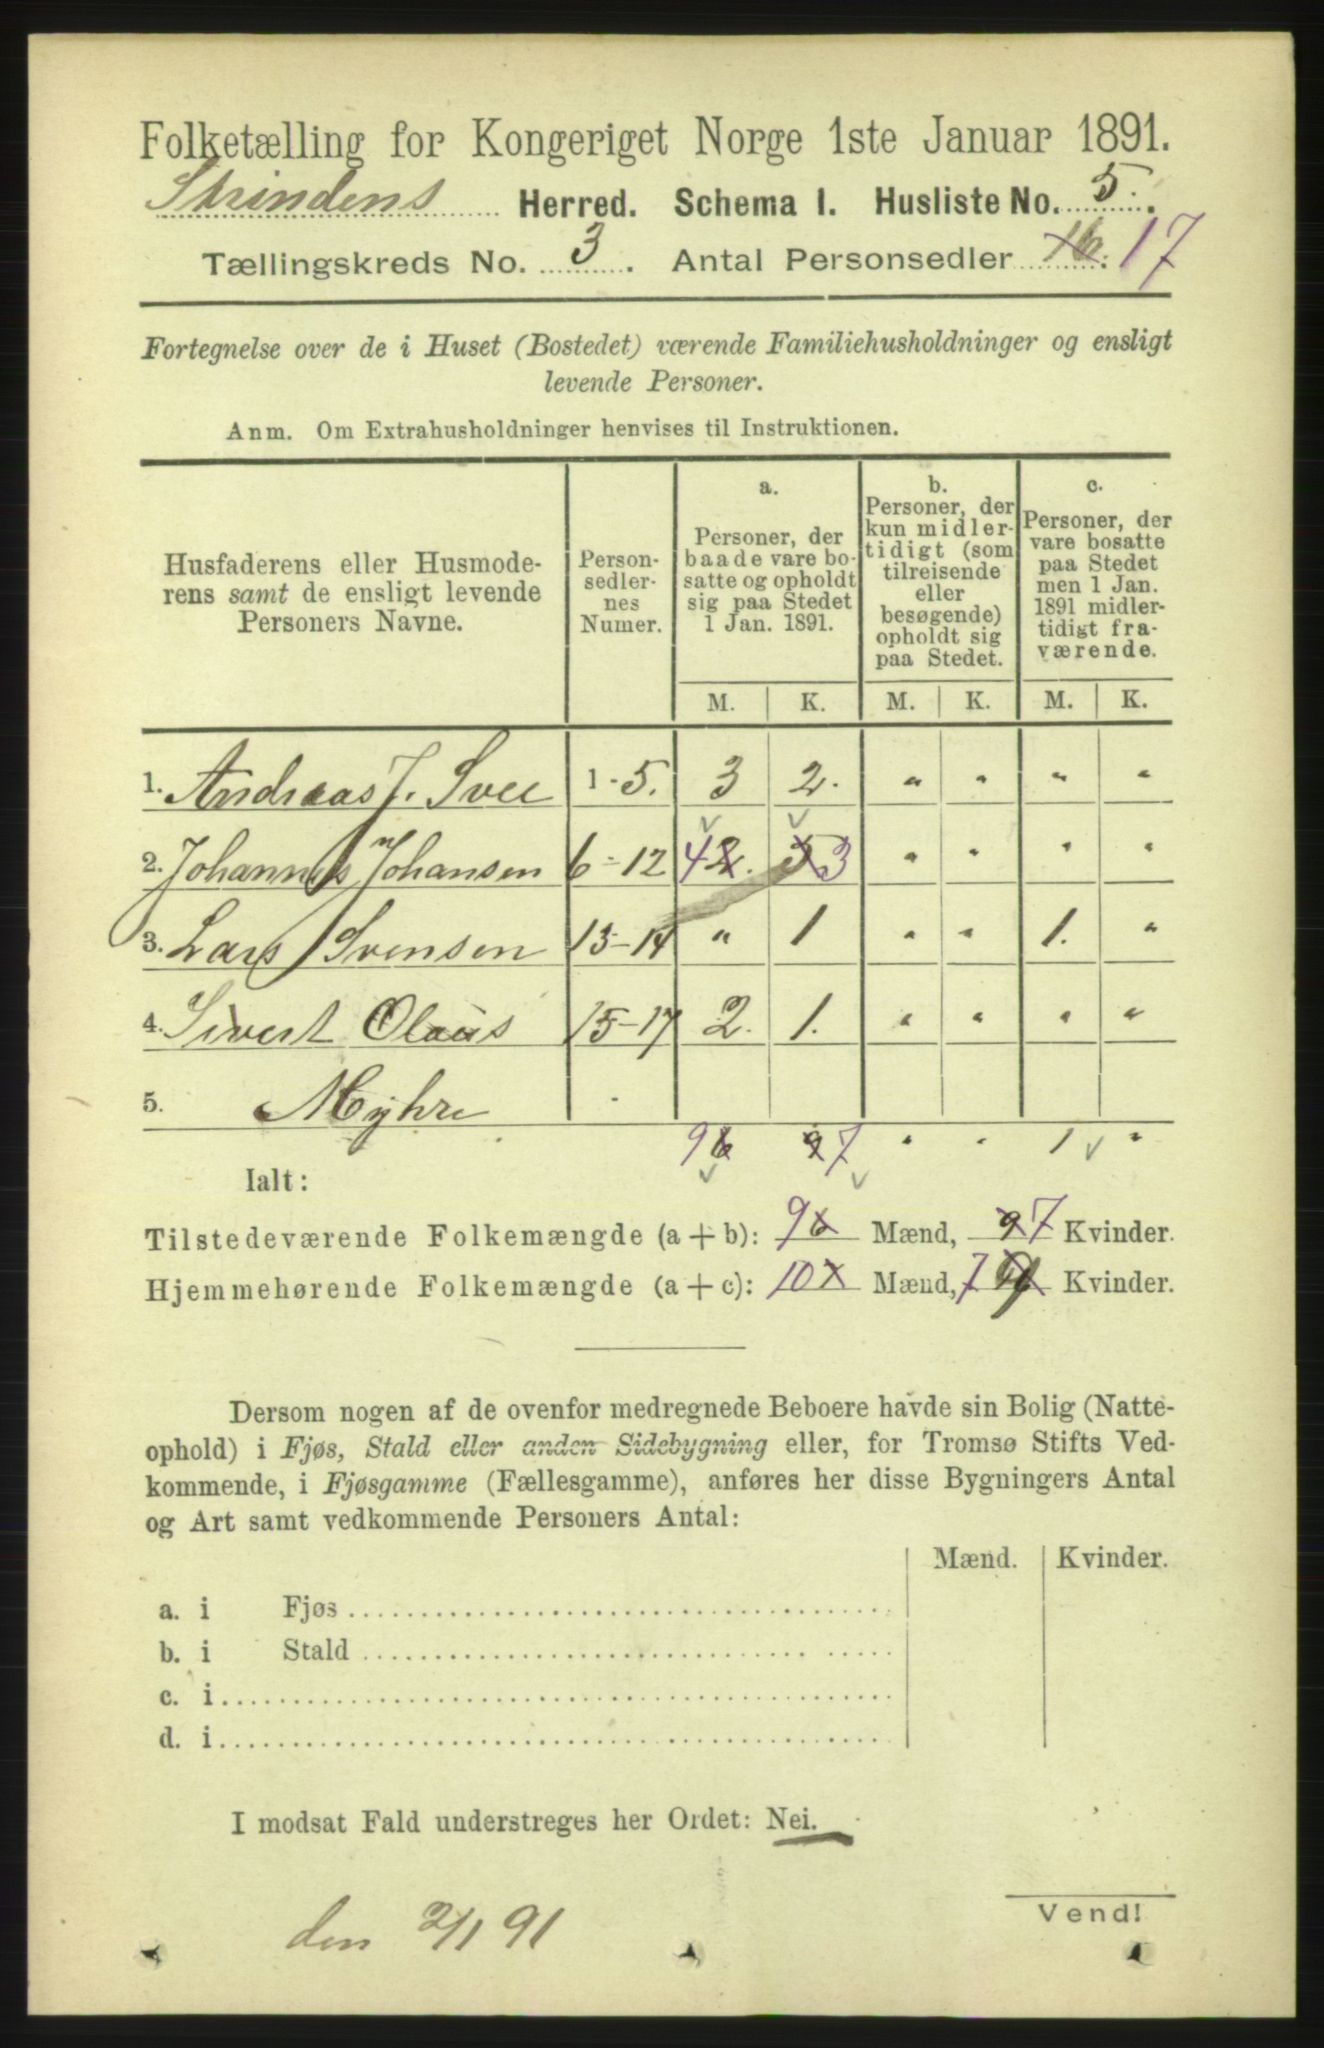 Folketælling for Kongeriget Norge 1ste Januar 1891.
Strindens Herred. Schema I. Husliste No. 5.
Tællingskreds No. 3. Antal Personsedler 16. 17
Fortegnelse over de i Huset (Bostedet) værende Familiehusholdninger og ensligt
levende Personer.
Anm. Om Extrahusholdninger henvises til Instruktionen.
Husfaderens eller Husmode-
rens samt de ensligt levende
Personers Navne.
Person-
sedler-
nes
Numer.
a.
Personer, der
baade vare bo-
satte og opholdt
sig paa Stedet
1 Jan. 1891.
b.
Personer, der
kun midler-
tidigt (som
tilreisende
eller
besøgende)
opholdt sig
paa Stedet.
c.
Personer, der
vare bosatte
paa Stedet
men 1 Jan.
1891 midler-
tidigt fra-
værende.
M. K. M. K. M. K.
1. Andreas J. Svee 1-5. 3 2. " " " "
2. Johannes Johansen 6-12 4 2. 5 3 " " " "
3. Lars J Svensen 13-14 " 1 " " 1. "
4. Sivert Olaus 15-17 2. 1. " " " "
5. Myhre
9 6 9 7 " " 1 "
Ialt:
Tilstedeværende Folkemængde (a + b): 9 6 Mænd, 9 7 Kvinder.
Hjemmehørende Folkemængde (a + c): 10 Mænd, 7 9 Kvinder.
Dersom nogen af de ovenfor medregnede Beboere havde sin Bolig (Natte-
ophold) i Fjøs, Stald eller anden Sidebygning eller, for Tromsø Stifts Ved-
kommende, i Fjøsgamme (Fællesgamme), anføres her disse Bygningers Antal
og Art samt vedkommende Personers Antal:
Mænd. Kvinder.
a. i Fjøs
b. i Stald
c. i
d. i
I modsat Fald understreges her Ordet: Nei.
den 2/1 91
Vend!